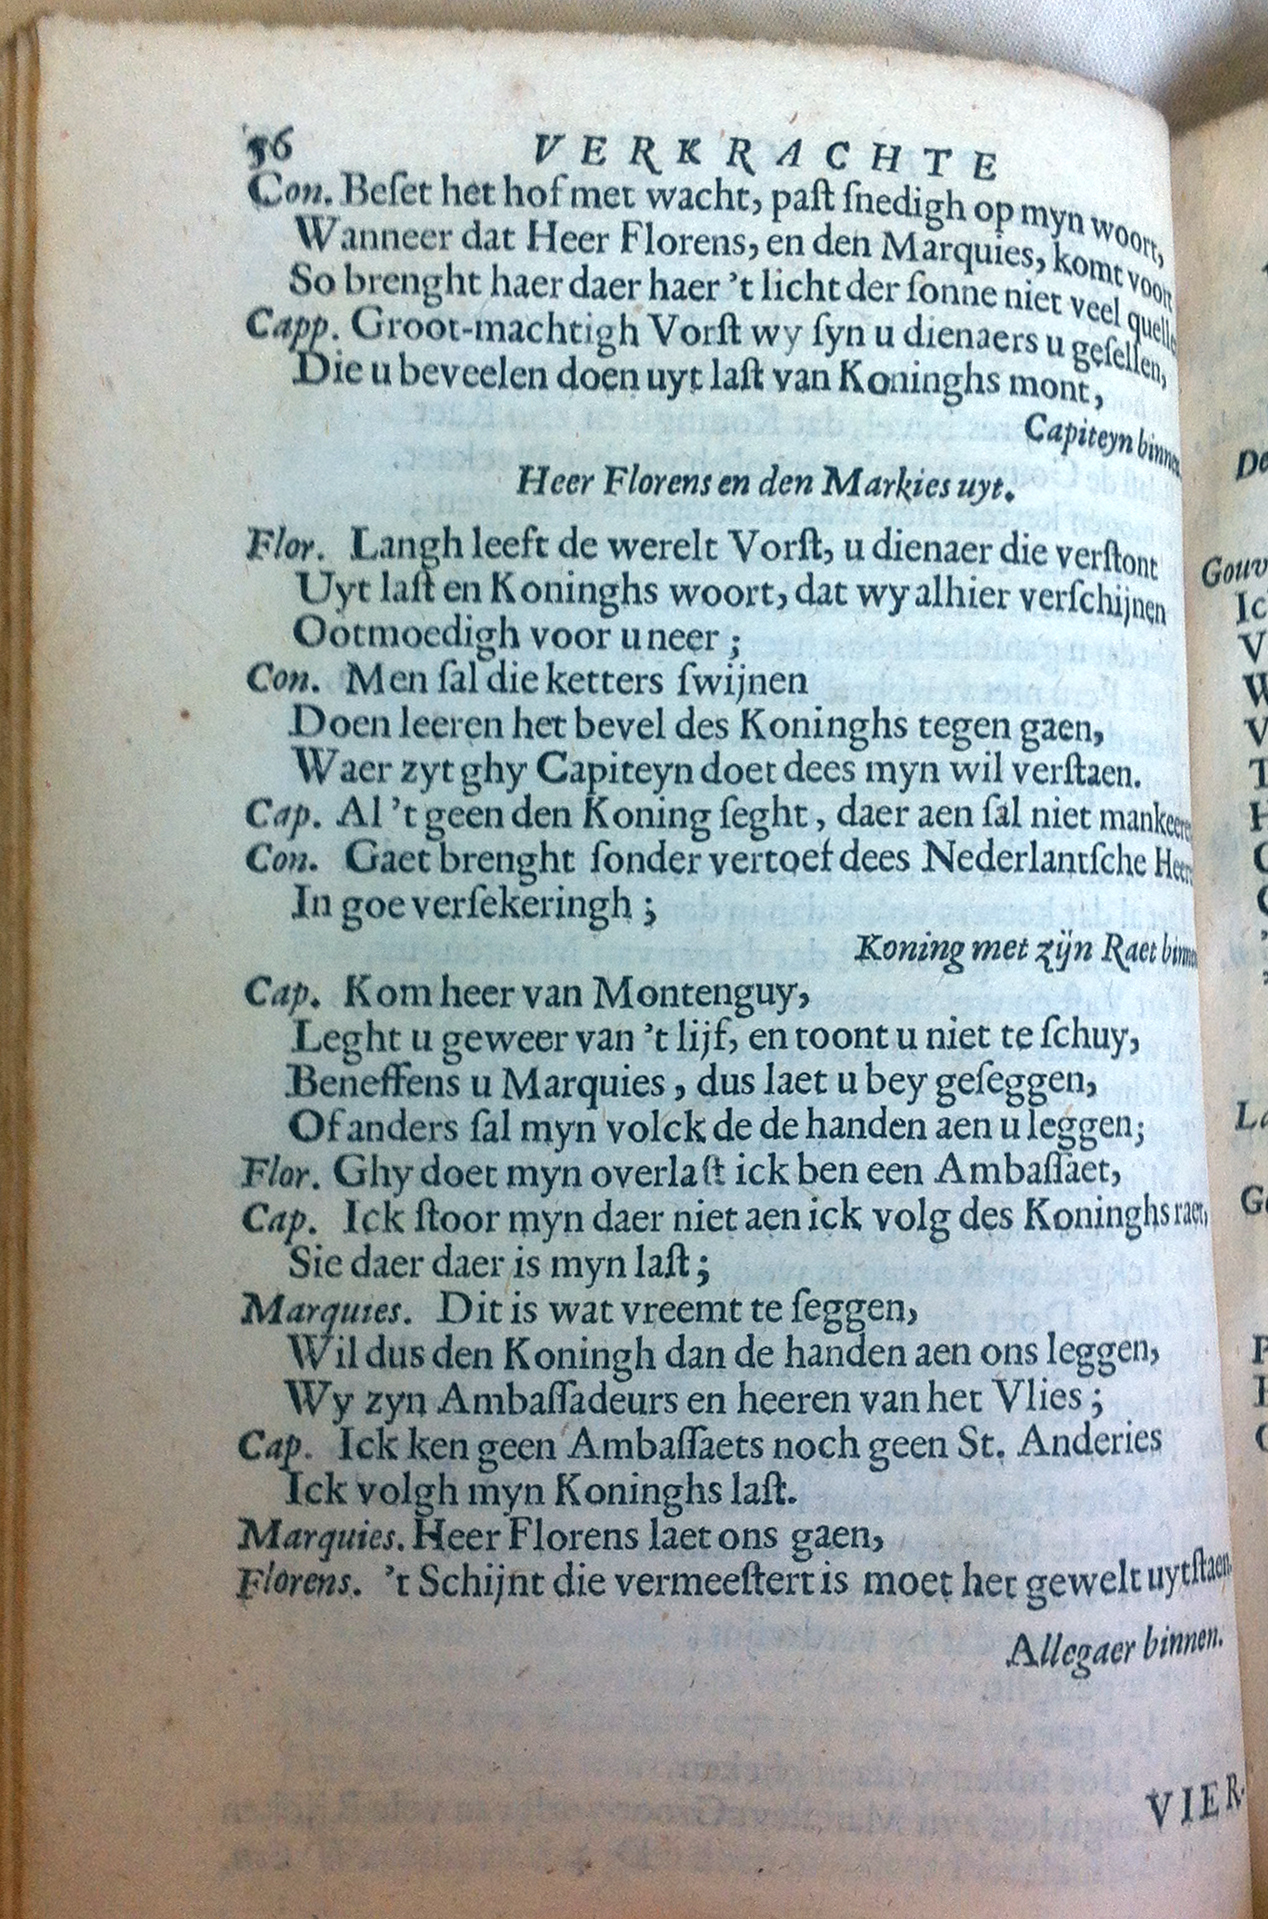 56 VERKRACHTE
Con. Beſet het hof met wacht, paſt ſnedigh op myn woort,
Wanneer dat Heer Florens, en den Marquies, komt voort
So brenght haer daer haer 't licht der ſonne niet veel quelle
Capp. Groot-machtigh Vorſt wy ſyn u dienaers u geſellen,
Die u beveelen doen uyt laſt van Koninghs mont,
Capiteyn binnen
Heer Florens en den Markies uyt.
Flor. Langh leeft de werelt Vorſt, u dienaer die verſtont
Uyt laſt en Koninghs woort, dat wy alhier verſchijnen
Ootmoedigh voor u neer ;
Con. Men ſal die ketters ſwijnen
Doen leeren het bevel des Koninghs tegen gaen,
Waer zyt ghy Capiteyn doet dees myn wil verſtaen.
Cap. Al 't geen den Koning ſeght, daer aen ſal niet mankeere
Con. Gaet brenght ſonder vertoef dees Nederlantſche Heer
In goe verſekeringh ;
Koning met zijn Raet binnen
Cap. Kom heer van Montenguy,
Leght u geweer van 't lijf, en toont u niet te ſchuy,
Beneffens u Marquies, dus laet u bey geſeggen,
Of anders ſal myn volck de de handen aen u leggen;
Flor. Ghy doet myn overlaſt ick ben een Ambaſſaet,
Cap. Ick ſtoor myn daer niet aen ick volg des Koninghs raet,
Sie daer daer is myn laſt;
Marquies. Dit is wat vreemt te ſeggen,
Wil dus den Koningh dan de handen aen ons leggen,
Wy zyn Ambaſſadeurs en heeren van het Vlies ;
Cap. Ick ken geen Ambaſſaets noch geen St. Anderies
Ick volgh myn Koninghs laſt.
Marquies. Heer Florens laet ons gaen,
Florens. 't Schijnt die vermeeſtert is moet het gewelt uytſtaen.
Allegaer binnen.
VIER-
De
Gouv
Ic
V
W
V
T
H
La
Ge